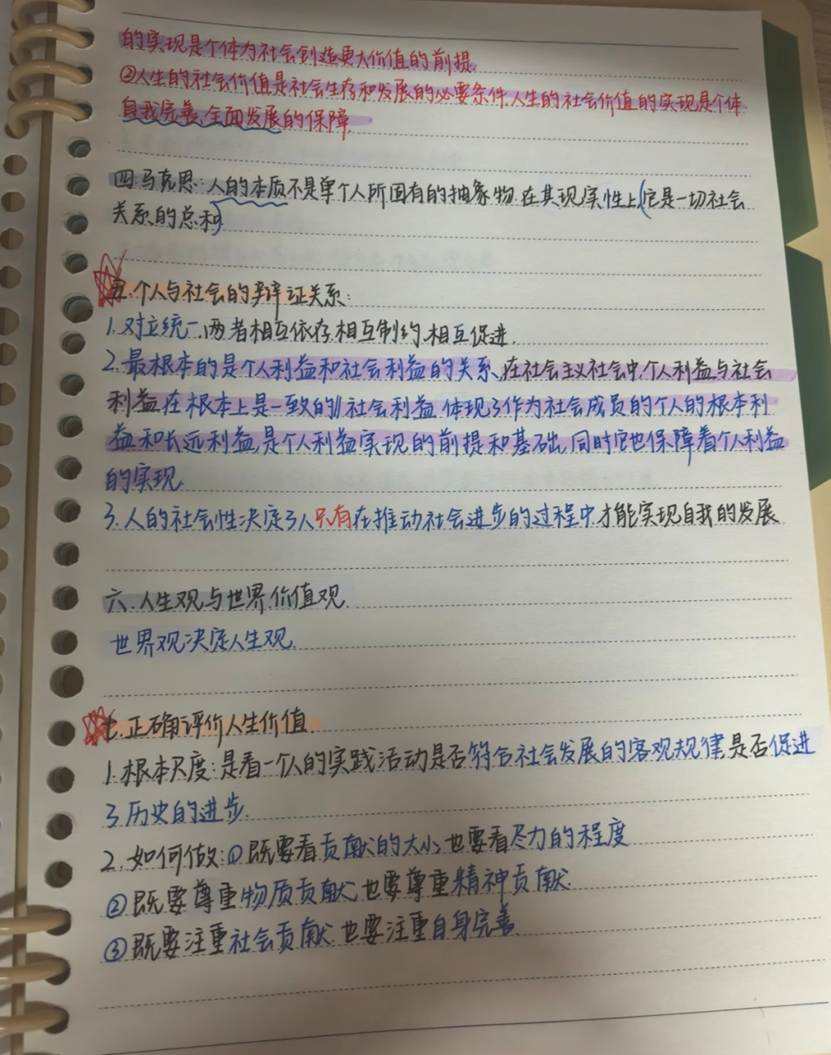 的实现是个体为社会创造更大价值的前提.
②人生的社会价值是社会生存和发展的必要条件.人生的社会价值的实现是个体
自我完善、全面发展的保障.
四.马克思:人的本质不是单个人所固有的抽象物.在其现实性上,它是一切社会
关系的总和
五.个人与社会的辩证关系:
1.对立统一.两者相互依存.相互制约.相互促进.
2.最根本的是个人利益和社会利益的关系、在社会主义社会中.个人利益与社会
利益在根本上是一致的//社会利益体现了作为社会成员的个人的根本利
益和长远利益,是个人利益实现的前提和基础,同时它也保障着个人利益
的实现.
3.人的社会性决定了人只有在推动社会进步的过程中.才能实现自我的发展
六.人生观与世界.价值观.
世界观决定人生观.
七.正确评价人生价值.
1.根本尺度:是看一个人的实践活动是否符合社会发展的客观规律,是否促进
了历史的进步.
2.如何做:①既要看贡献的大小也要看尽力的程度
②既要尊重物质贡献也要尊重精神贡献.
③既要注重社会贡献也要注重自身完善.